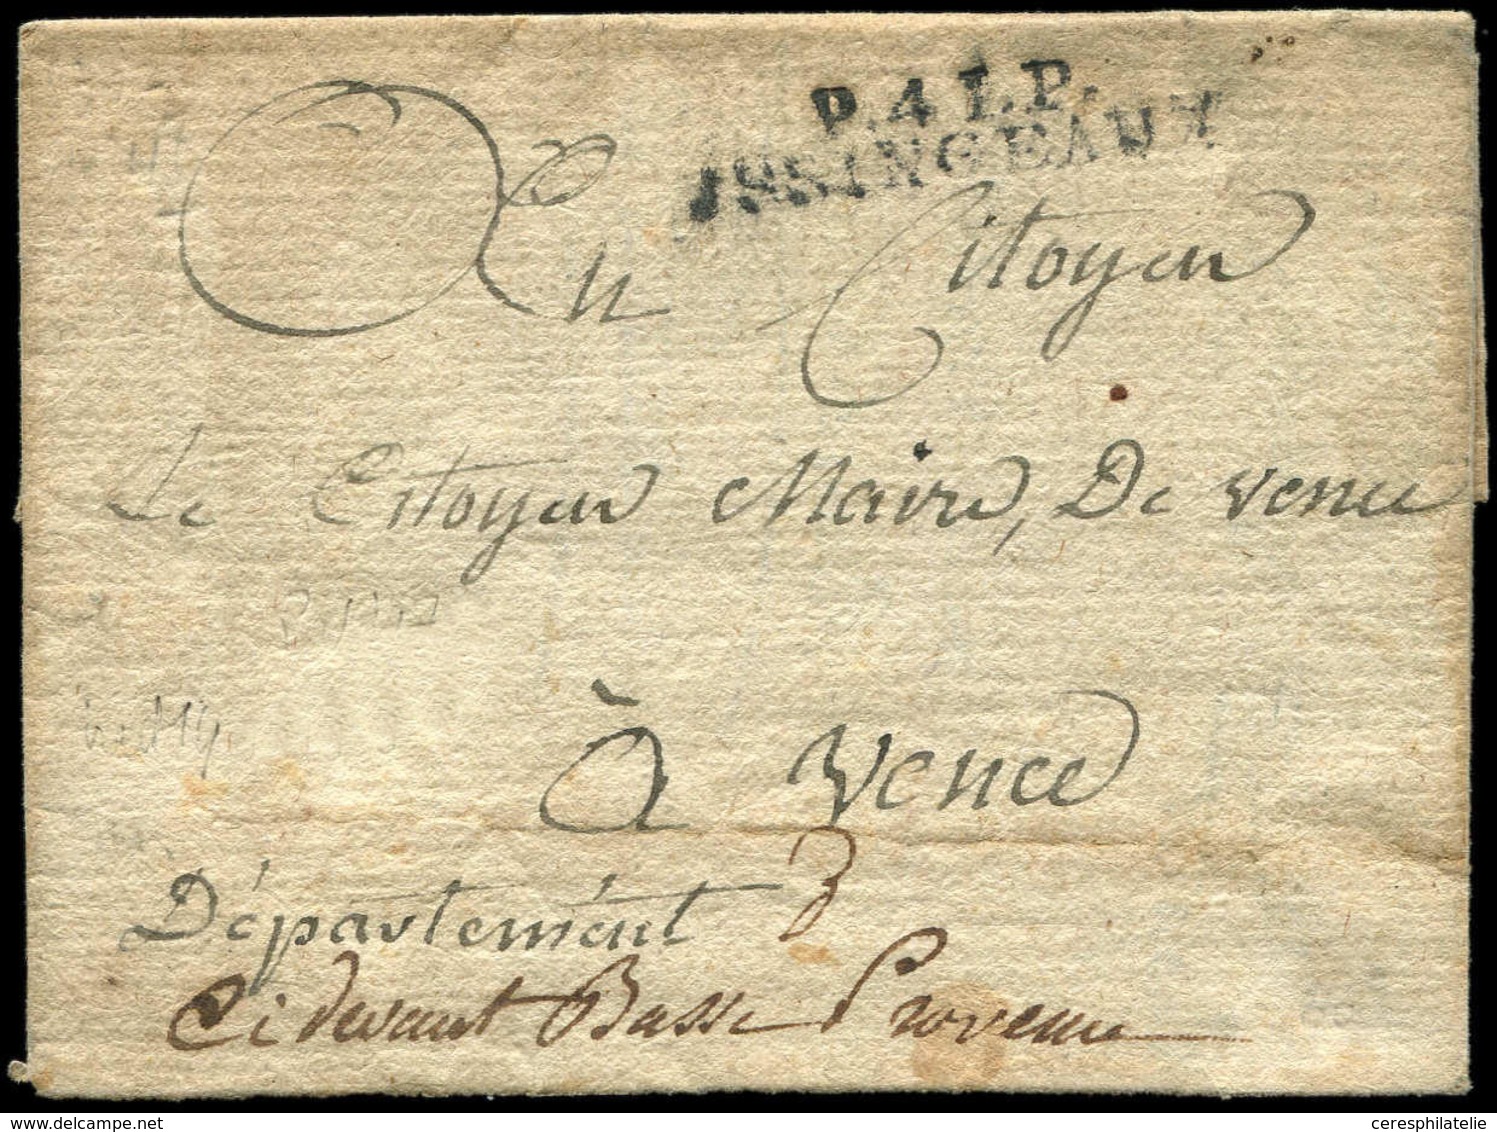 P.41.P.
JSSINGEAUX
Au Citoyen
Le Citoyen Maire, De Vence
à Vence
3
Département
Ci devant Basse Provence
www.delcampe.net
ceresphilatelie